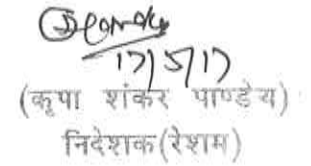 17/5/17
(कृपा शंकर पाण्डेय)
निदेशक(रेशम)